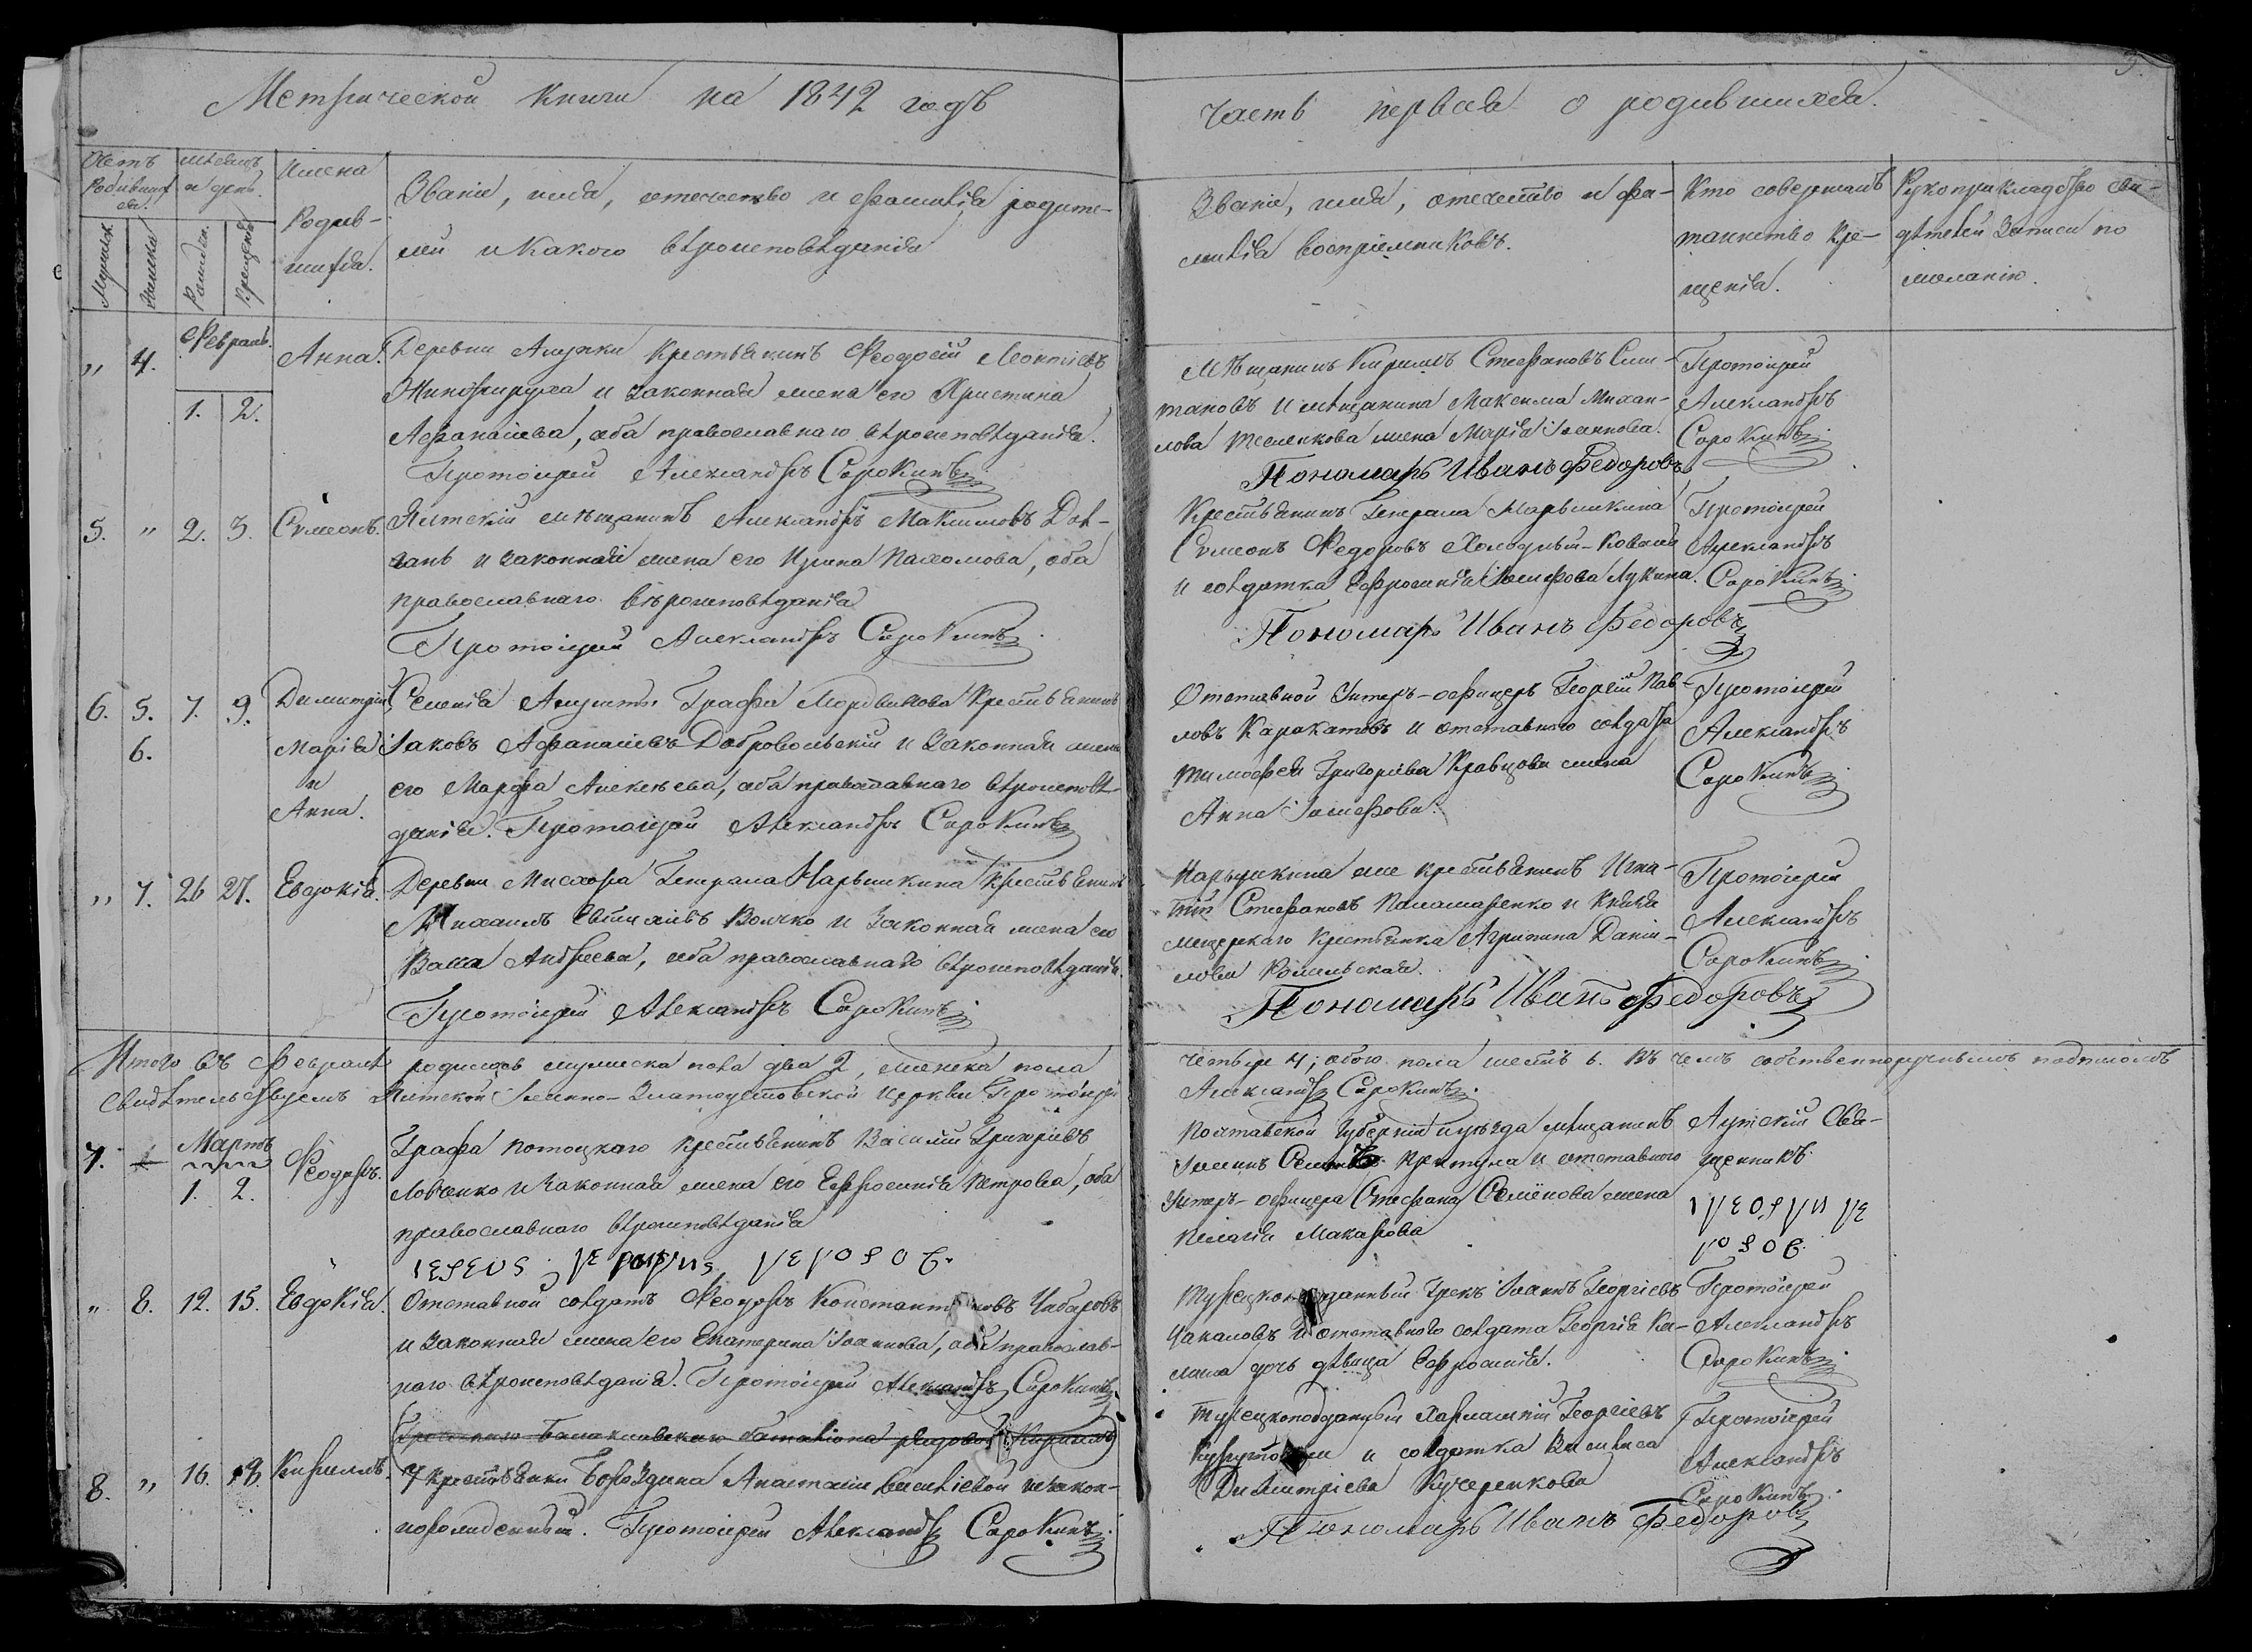 Метрической книги на 1842 годъ
часть первая о родившихся.
3.
Счетъ родившихся.
Мужеск.
Женска
мѣсяцъ и день.
Рожден.
Крещен.
Имена
Родив-
шихся.
Званіе, имя, отечество и фамилія родите-
лей и какого вѣроисповѣданія
Званіе, имя, отечество и фа-
милія воспріемниковъ.
Кто совершалъ
таинство кре-
щенія.
Рукоприкладство сви-
дѣтелей записи по
желанію.
„ 4. Февраль. 1. 2. Анна.
Деревни Алупки крестьянинъ Феодосій Леонтіевъ
и законная жена его Христина
Афанасіева, оба православнаго вѣроисповѣданія.
Протоіерей Александръ Сорокинъ
Мѣщанинъ Кириллъ Стефановъ Сли-
тановъ и мѣщанина Максима Михаи-
лова жена Марія Іоаннова.
Пономарь Иванъ Федоровъ
Протоіерей
Александръ
Сорокинъ
5. „ 2. 3. Симеонъ.
Ялтскій мѣщанинъ Александръ Максимовъ Дол-
жанъ и законная жена его Ирина Пахомова, оба
православнаго вѣроисповѣданія
Протоіерей Александръ Сорокинъ
Крестьянинъ Генерала Нарышкина
Симеонъ Федоровъ Холодный-Коваль
и солдатка Ефросинія Іосифова Лукина.
Пономарь Иванъ Федоровъ
Протоіерей
Александръ
Сорокинъ
6. 5. 7. 9. Димитрій,
6. Марія
и
Анна.
Селенія Алушты Графа Мордвинова крестьянинъ
Іаковъ Афанасіевъ Добровольскій и законная жена
его Марфа Алексѣева, оба православнаго вѣроисповѣ-
данія. Протоіерей Александръ Сорокинъ
Отставной Унтеръ-офицеръ Георгій Пав-
ловъ Каракатовъ и отставнаго солдата
Тимофея Григоріева Кравцова жена
Анна Іосифова.
Протоіерей
Александръ
Сорокинъ
„ 7. 26 27. Евдокія.
Деревни Мисхора Генерала Нарышкина крестьянинъ
Михаилъ Волчко и законная жена его
Васса Андреева, оба православнаго вѣроисповѣданія.
Протоіерей Александръ Сорокинъ
Нарышкина же крестьянинъ Игна-
тій Стефановъ Паламаренко и Князя
Мещерскаго крестьянка Агрипина Даніи-
лова
Пономарь Иванъ Федоровъ
Протоіерей
Александръ
Сорокинъ
Итого въ Февралѣ родилось мужеска пола два 2, женска пола
четыре 4; обоего пола шесть 6. Въ чемъ собственноручнымъ подписомъ
свидѣтельствуемъ Ялтской Іоанно-Златоустовской церкви Протоіерей
Александръ Сорокинъ.
7. Мартъ 1. 2. Феодоръ.
Графа Потоцкаго крестьянинъ Василій Григоріевъ
Ловченко и законная жена его Ефросинія Петрова, оба
православнаго вѣроисповѣданія
Полтавской губерніи и уѣзда мѣщанинъ
Іоаннъ и отставнаго
Унтеръ-офицера Стефана Семенова жена
Пелагія Макарова
Аутскій Свя-
щенникъ
„ 8. 12. 15. Евдокія.
Отставной солдатъ Феодоръ Константиновъ Чабаровъ
и законная жена его Екатерина Іоаннова, оба православ-
наго вѣроисповѣданія. Протоіерей Александръ Сорокинъ
Турецкоподданный Грекъ Іоаннъ Георгіевъ
Чакаловъ и отставного солдата Георгія Ка-
лаша дочь дѣвица Ефросинія.
Протоіерей
Александръ
Сорокинъ
Греческаго Балаклавскаго баталіона рядовой Кириллъ
8. „ 16. 19. Кириллъ.
У крестьянки Бороздина Анастасіи Васильевой незакон-
норожденный. Протоіерей Александръ Сорокинъ.
Турецкоподданный Харлампій Георгіевъ
и солдатка Василиса
Димитріева Кучеренкова
Пономарь Иванъ Федоровъ
Протоіерей
Александръ
Сорокинъ.